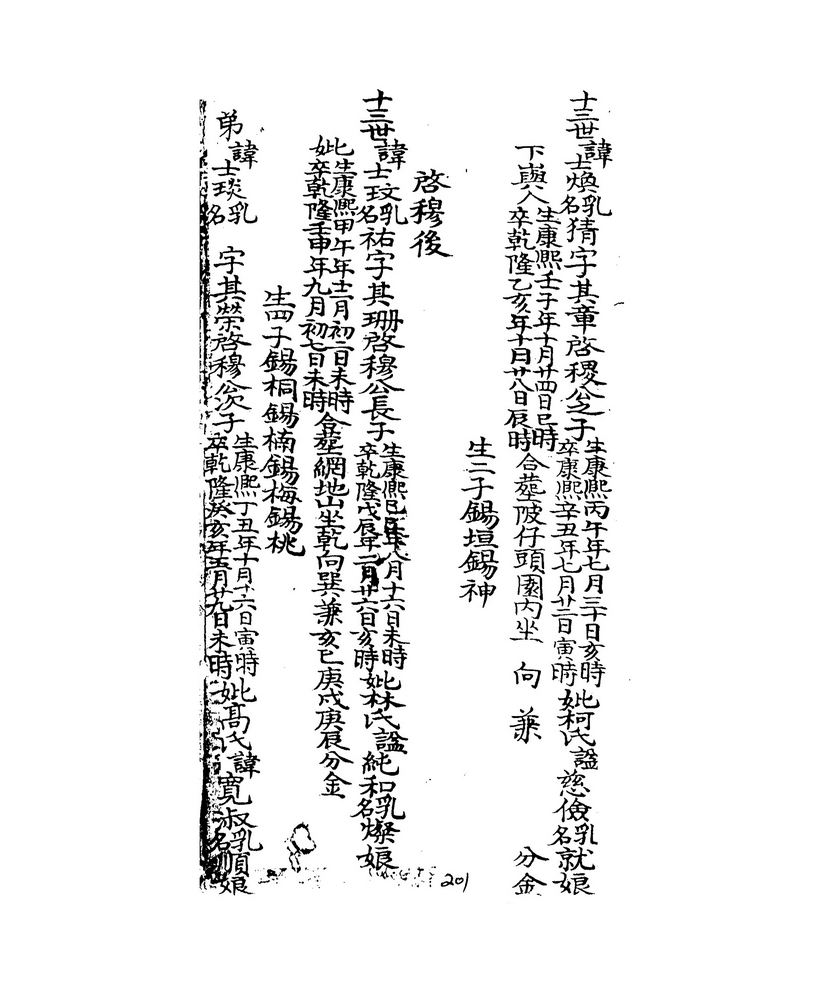 十三世諱士煥乳名猜字其章啓稷公之子生康熙丙午年七月三十日亥時卒康熙辛丑年七月廿三日寅時妣柯氏謚慈儉乳名就娘
生康熙壬子年十月廿四日巳時卒乾隆乙亥年十月廿八日辰時合塟陂仔頭園內坐 向 兼 分金
生二子錫垣錫神
啓穆後
十三世諱士玟乳名祐字其珊啓穆公長子生康熙己巳年八月十六日未時卒乾隆戊辰年二月廿六日亥時妣林氏謚純和乳名燦娘
妣生康熙甲午年十二月初二日未時卒乾隆壬申年九月初七日未時合塟網地山坐乾向巽兼亥巳庚戌庚辰分金
生四子錫桐錫楠錫梅錫桃
弟諱士琰乳名 字其榮啓穆公次子生康熙丁丑年十月十六日寅時卒乾隆癸亥年五月廿九日未時妣高氏諱寬淑乳名順娘
201